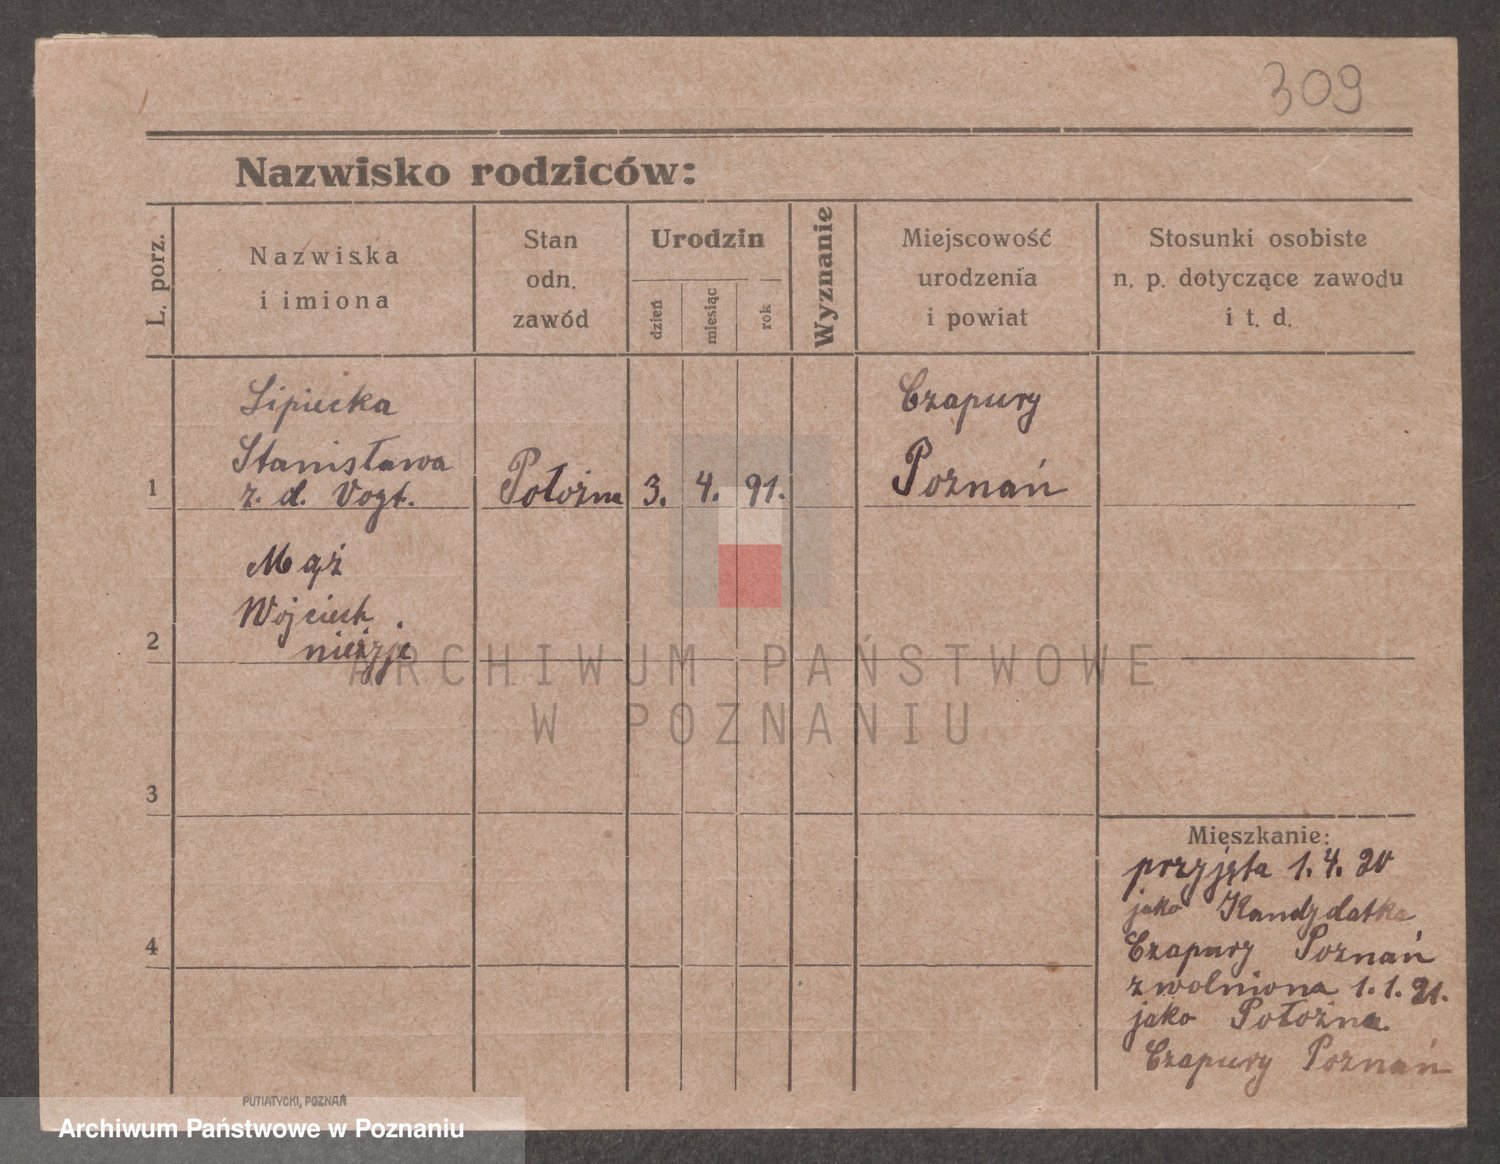 309
Nazwisko rodziców:
L. porz.
Nazwiska
i imiona
Stan
odn.
zawód
Urodzin
dzień
miesiąc
rok
Wyznanie
Miejscowość
urodzenia
i powiat
Stosunki osobiste
n. p. dotyczące zawodu
i t. d.
1
Lipiecka
Stanisława
z. d. Vogt.
Położna
3.
4.
91.
Czapury
Poznań
2
Mąż
Wojciech
nieżyje
3
4
Mieszkanie:
przyjęta 1. 4. 20
jako Kandydatka
Czapury Poznań
zwolniona 1. 1. 21.
jako Położna
Czapury Poznań
PUTIATYCKI, POZNAŃ
ARCHIWUM PAŃSTWOWE
W POZNANIU
Archiwum Państwowe w Poznaniu